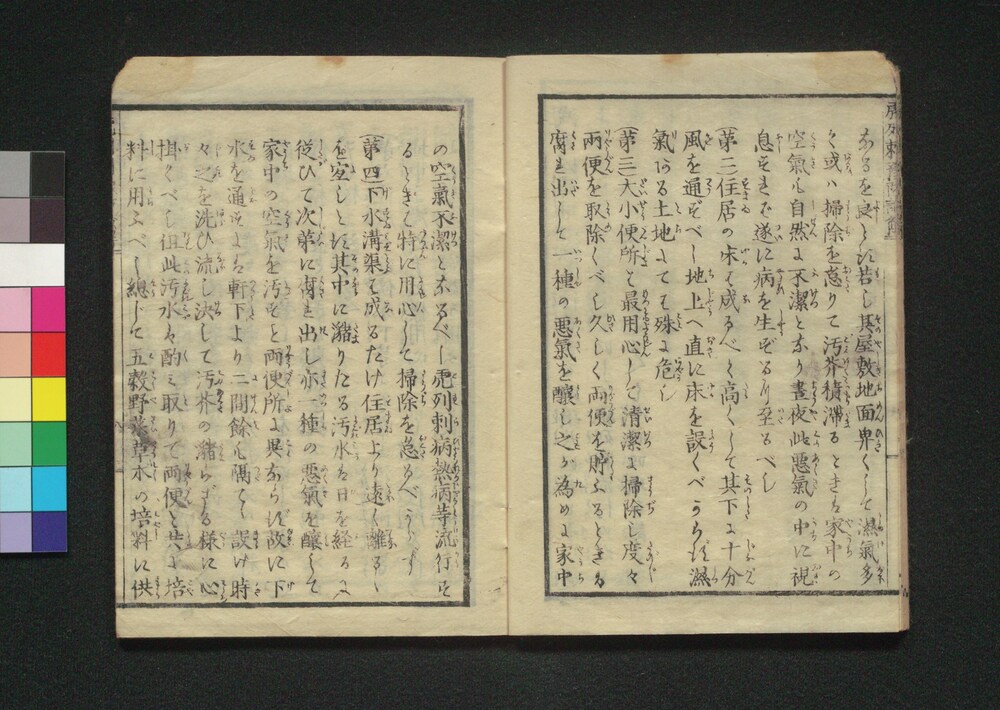 なるを良とす若し其屋敷地面卑くして濕氣多
く或ハ掃除を怠りて汚芥積滞るときは家中の
空氣も自然に不潔となり晝夜此悪氣の中に視
息するまで遂に病を生ずるに至るべし
第二住居の床は成るべく高くして其下に十分
風を通ずべし地上へ直に床を設くべからず濕
氣ある土地にてハ殊に危し
第三大小便所ハ最用心して清潔に掃除し度々
両便を取除くべし久しく両便を貯ふるときは
腐れ出して一種の悪氣を釀し之が為めに家中
の空氣不潔となるべし虎列剌病熱病等流行す
るときハ特に用心して掃除を怠るべからず
第四下水溝渠ハ成るたけ住居より遠く離るゝ
を宜しとす其中に瀦りたる汚水ハ日を經るに
従ひて次第に腐れ出し亦一種の悪氣を釀して
家中の空氣を汚すこと両便所に異ならず故に下
水を通ずるは軒下より二間餘も隔てゝ設け時
々之を洗ひ流し決して汚芥の瀦らざる様に心
掛くべし但此汚水ハ酌み取りて両便と共に培
料に用ふべし總じて五穀野菜草木の培料に供